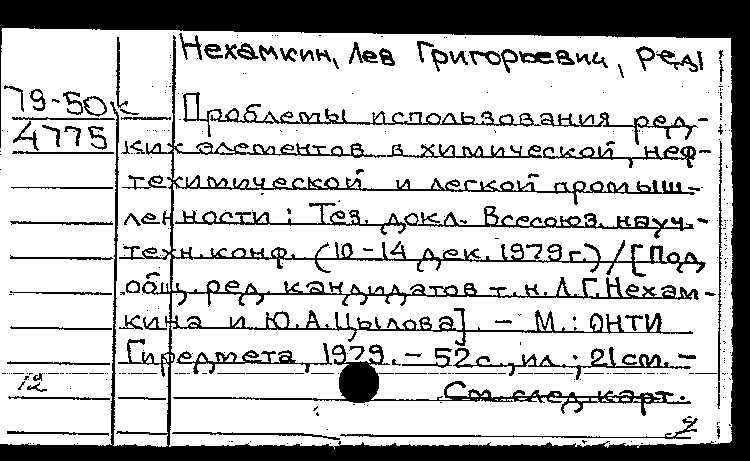 Нехамкин, Лев Григорьевич, ред.
79-50к
4775
Проблемы использования ред-
ких элементов в химической, неф-
техимической и легкой промыш-
ленности: Тез. докл. Всесоюз. науч.-
техн. конф. (10-14 дек. 1979г.)/[Под
общ. ред. кандидатов т.н. Л.Г.Нехам-
кина и Ю.А.Цылова]. - М.: ОНТИ
Гиредмета, 1979. - 52с., ил.; 21см. -
12
См. след. карт.